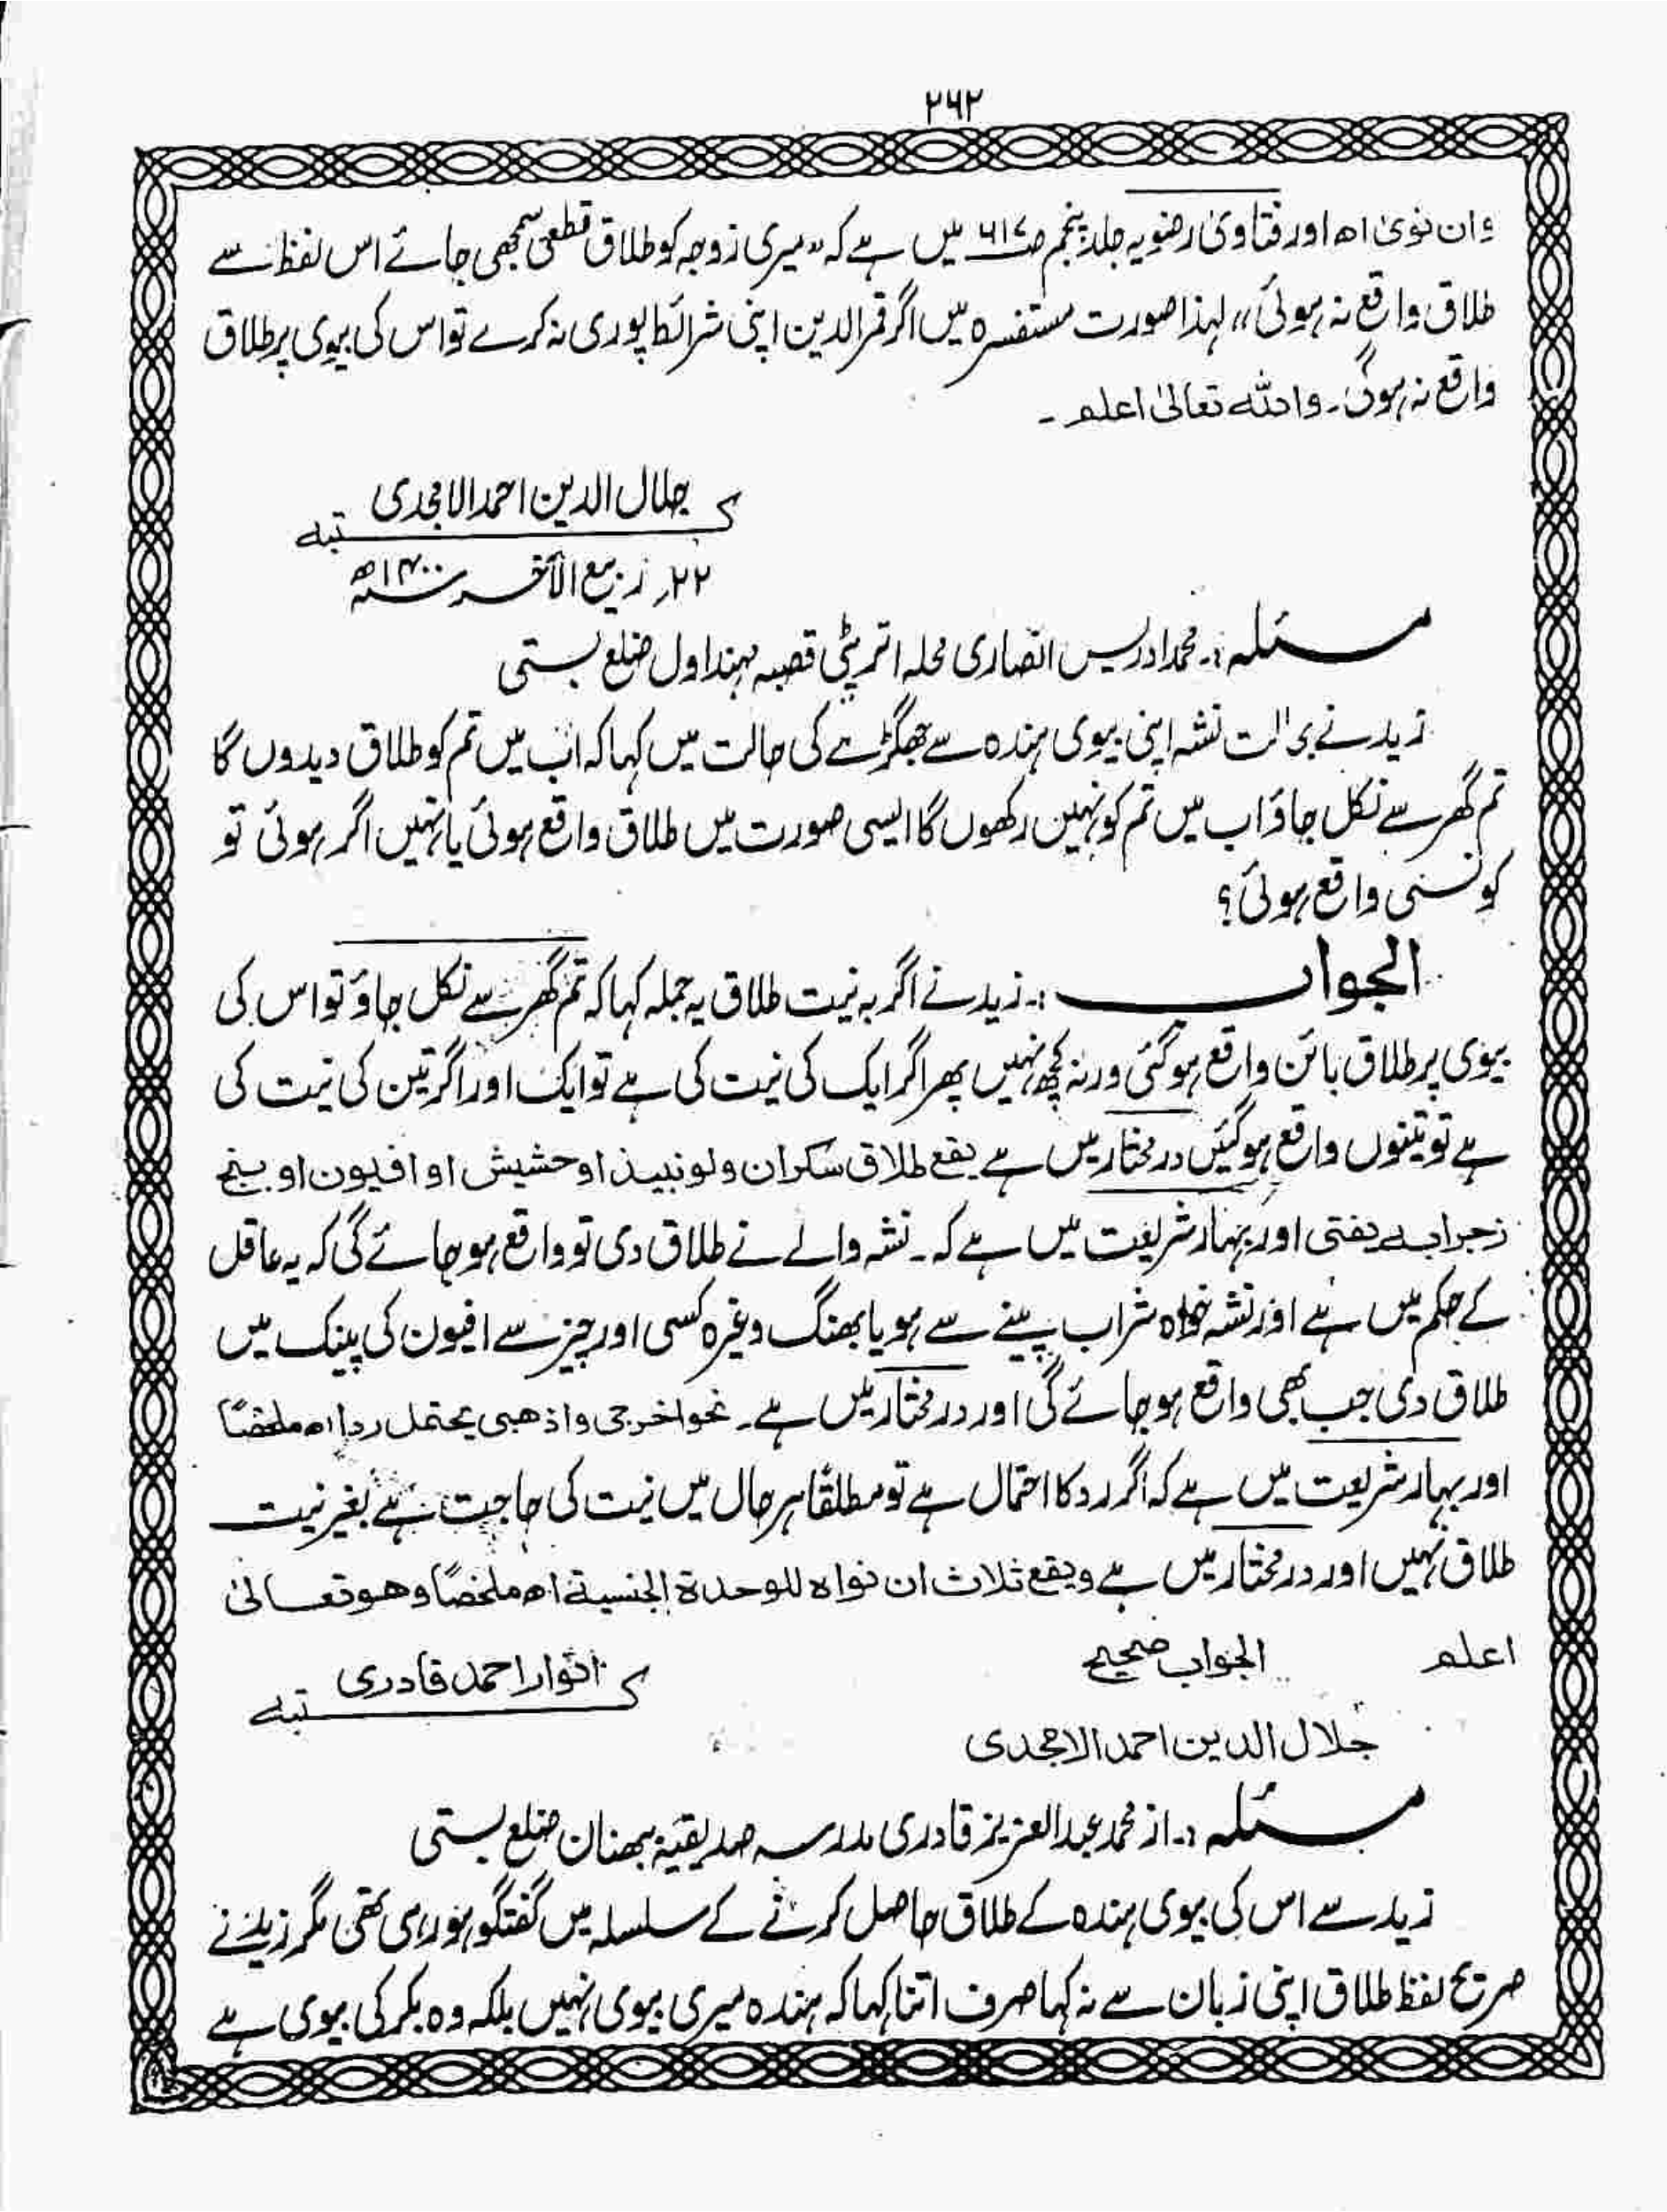 ۲۶۲
وان نوی اھ اور فتاویٰ رضویہ جلد پنجم ص۶۱۷ میں ہے کہ "میری زوجہ کو طلاق قطعی سمجھی جائے اس لفظ سے
طلاق واقع نہ ہوئی" لہذا صورت مستفسرہ میں اگر قمر الدین اپنی شرائط پوری نہ کرے تو اس کی بیوی پر طلاق
واقع نہ ہوگی۔ واللہ تعالیٰ اعلم۔
جلال الدین احمد الامجدی
کتبہ
۲۲؍ ربیع الآخر سنہ ۱۴۰۰ھ
مسئلہ:۔ محمد ادریس انصاری محلہ اتر پٹی قصبہ مہنداول ضلع بستی
زید نے بحالت نشہ اپنی بیوی ہندہ سے جھگڑے کی حالت میں کہا کہ اب میں تم کو طلاق دیدوں گا
تم گھر سے نکل جاؤ اب میں تم کو نہیں رکھوں گا ایسی صورت میں طلاق واقع ہوئی یا نہیں اگر ہوئی تو
کونسی واقع ہوئی؟
الجواب:۔ زید نے اگر بہ نیت طلاق یہ جملہ کہا کہ تم گھر سے نکل جاؤ تو اس کی
بیوی پر طلاق بائن واقع ہوگئی ورنہ کچھ نہیں پھر اگر ایک کی نیت کی ہے تو ایک اور اگر تین کی نیت کی
ہے تو تینوں واقع ہوگئیں درمختار میں ہے یقع طلاق سکران ولو نبیذ او حشیش او افیون او بنج
زجرا بہ یفتی اور بہار شریعت میں ہے کہ۔ نشہ والے نے طلاق دی تو واقع ہو جائے گی کہ یہ عاقل
کے حکم میں ہے اور نشہ خواہ شراب پینے سے ہو یا بھنگ وغیرہ کسی اور چیز سے افیون کی پینک میں
طلاق دی جب بھی واقع ہو جائے گی اور درمختار میں ہے۔ نحو اخرجی واذھبی یحتمل ردا اھ ملخصًا
اور بہار شریعت میں ہے کہ اگر رد کا احتمال ہے تو مطلقًا ہر حال میں نیت کی حاجت ہے بغیر نیت
طلاق نہیں اور درمختار میں ہے ویقع ثلاث ان نواہ للوحدۃ الجنسیۃ اھ ملخصًا وھو تعالیٰ
اعلم
الجواب صحیح
انوار احمد قادری
کتبہ
جلال الدین احمد الامجدی
مسئلہ:۔ از محمد عبد العزیز قادری مدرسہ صدیقیہ بھنان ضلع بستی
زید سے اس کی بیوی ہندہ کے طلاق حاصل کرنے کے سلسلہ میں گفتگو ہو رہی تھی مگر زید نے
صریح لفظ طلاق اپنی زبان سے نہ کہا صرف اتنا کہا کہ ہندہ میری بیوی نہیں بلکہ وہ بکر کی بیوی ہے